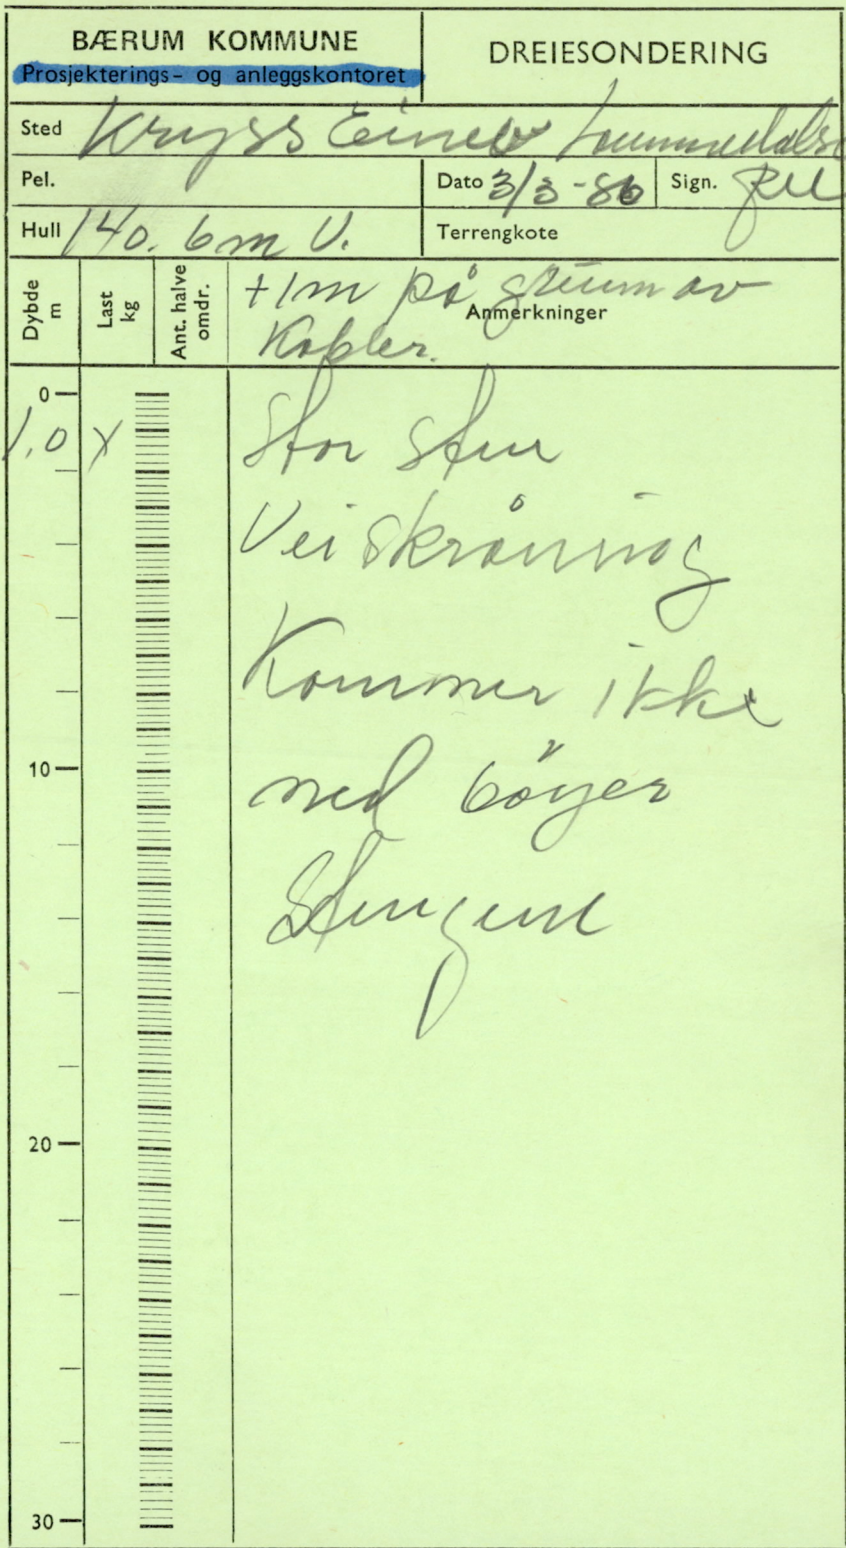 BÆRUM KOMMUNE
Prosjekterings- og anleggskontoret
DREIESONDERING
Sted Kryss Lommedals
Pel.
Dato 3/3-86 Sign.
Hull 140. 6m V.
Terrengkote
Dybde m
Last kg
Ant. halve omdr.
+1m på grunn av
Anmerkninger
Kabler.
0
1,0 X
Stor sten
Veiskråning
Kommer ikke
10
ned böyer
Stengene
20
30